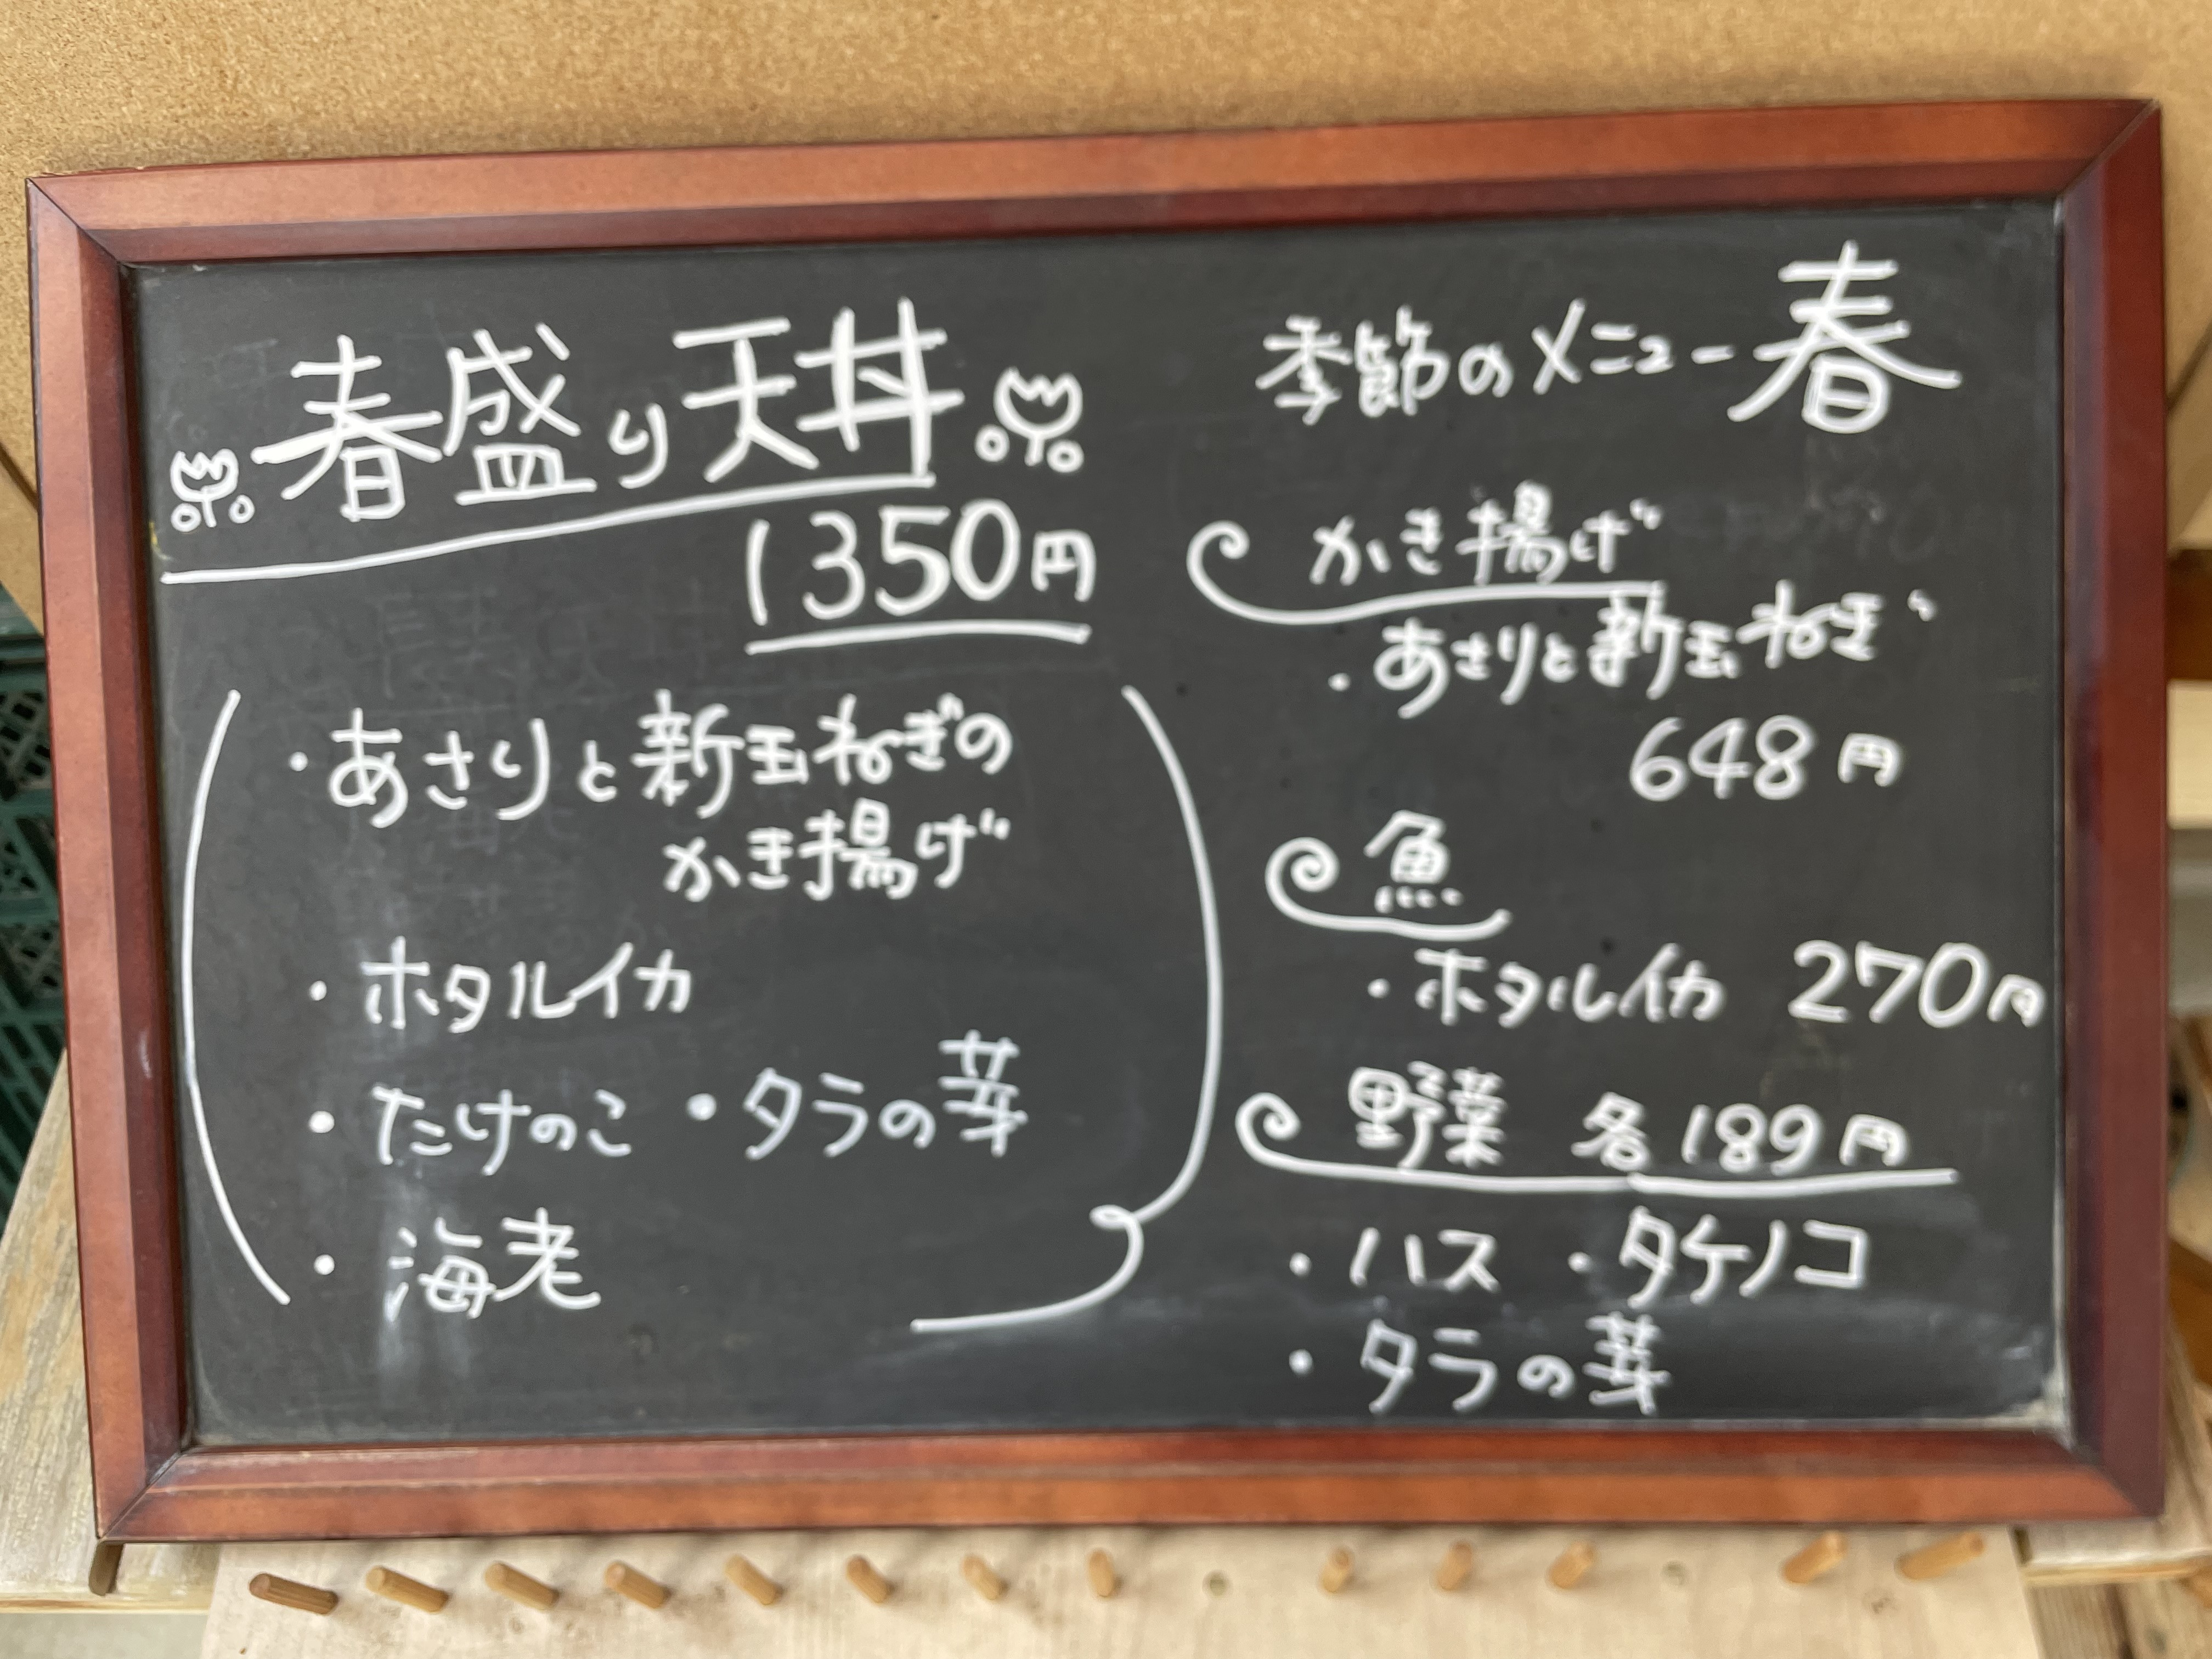 春盛り天丼
1350円
・あさりと新玉ねぎの
かき揚げ
・ホタルイカ
・たけのこ・タラの芽
・海老
季節のメニュー春
かき揚げ
・あさりと新玉ねぎ
648円
魚
・ホタルイカ 270円
野菜 各189円
・ハス ・タケノコ
・タラの芽